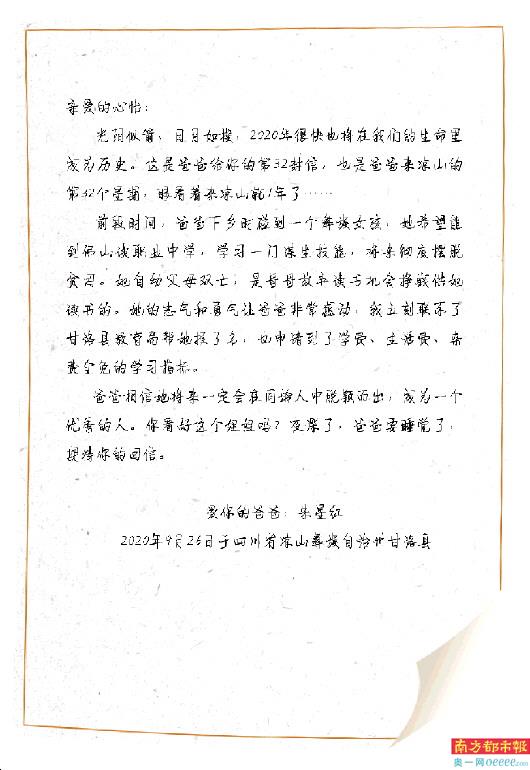 亲爱的心怡：
光阴似箭、日月如梭，2020年很快也将在我们的生命里
成为历史。这是爸爸给你的第32封信，也是爸爸来凉山的
第32个星期，眼看着来凉山就1年了……
前段时间，爸爸下乡时碰到一个彝族女孩，她希望能
到佛山读职业中学，学习一门谋生技能，将来彻底摆脱
贫困。她自幼父母双亡，是哥哥放弃读书机会挣钱供她
读书的。她的志气和勇气让爸爸非常感动，我立刻联系了
甘洛县教育局帮她报了名，也申请到了学费、生活费、杂
费全免的学习指标。
爸爸相信她将来一定会在同龄人中脱颖而出，成为一个
优秀的人。你看好这个姐姐吗？夜深了，爸爸要睡觉了，
期待你的回信。
爱你的爸爸：朱星红
2020年9月26日于四川省凉山彝族自治州甘洛县
南方都市报
奥一网oeeee.com